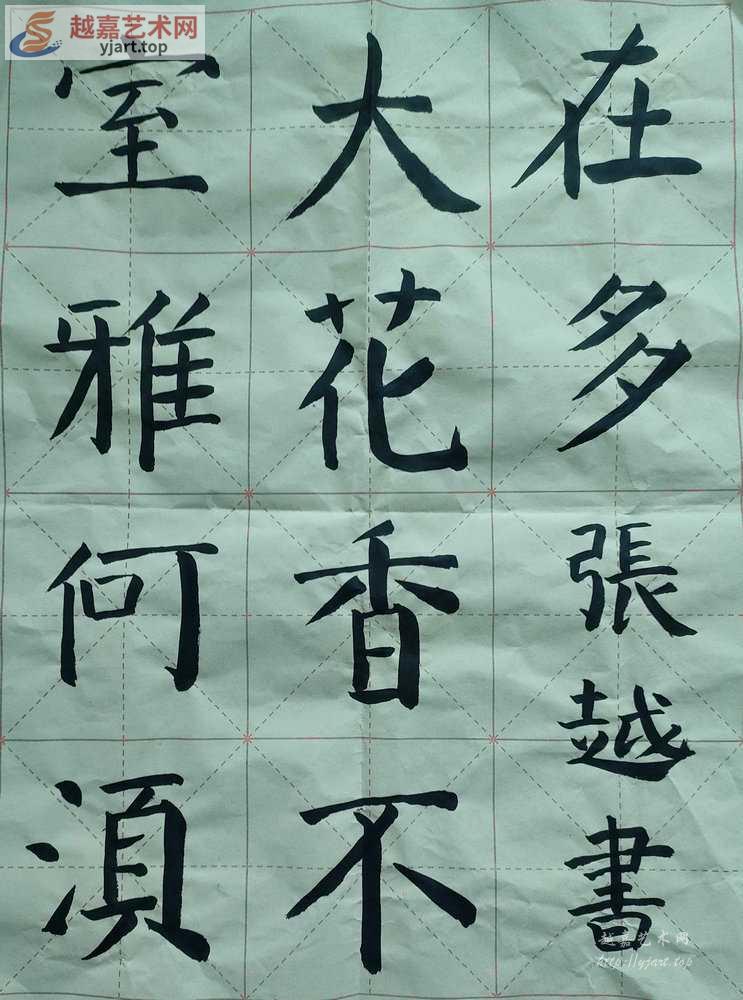 越嘉艺术网
yjart.top
室雅何湏
大花香不
在多
張越書
越嘉艺术网
http://yjart.top